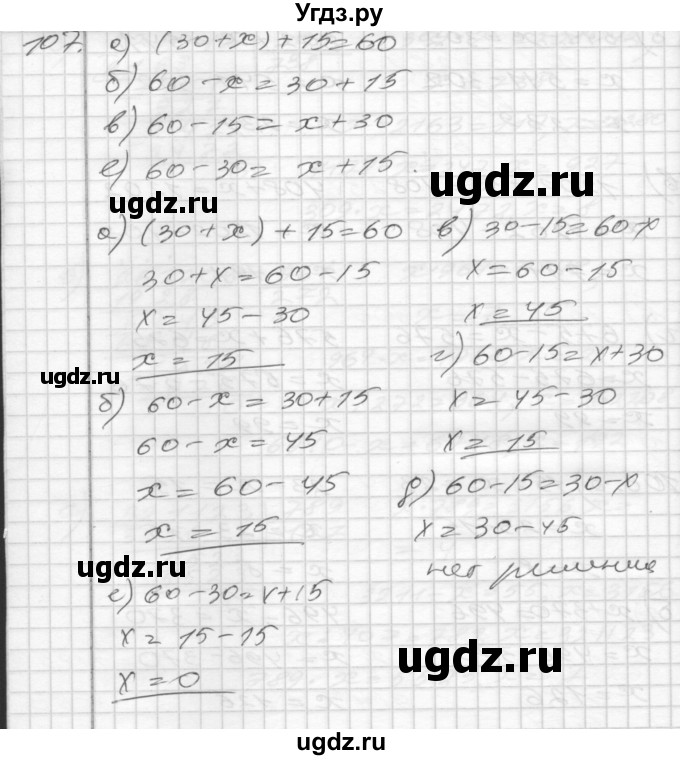 Угдз.ру
107. а) (30+x)+15=60
б) 60-x=30+15
в) 60-15=x+30
е) 60-30= x+15.
ugdz.ru
ugdz.ru
а) (30+x)+15=60
30+x=60-15
x=45-30
x=15
ugdz.ru
б) 60-x=30+15
60-x=45
x=60-45
x=15
ugdz.ru
е) 60-30=x+15
x=15-15
x=0
в) 30-15=60-x
x=60-15
x=45
г) 60-15=x+30
x=45-30
x=15
д) 60-15=30-x
x=30-45
нет решение
ugdz.ru
ugdz.ru